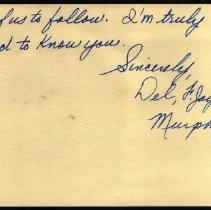 f us to follow. I'm truly
d to know you.
Sincerely,
Del, F. Jay
Murph